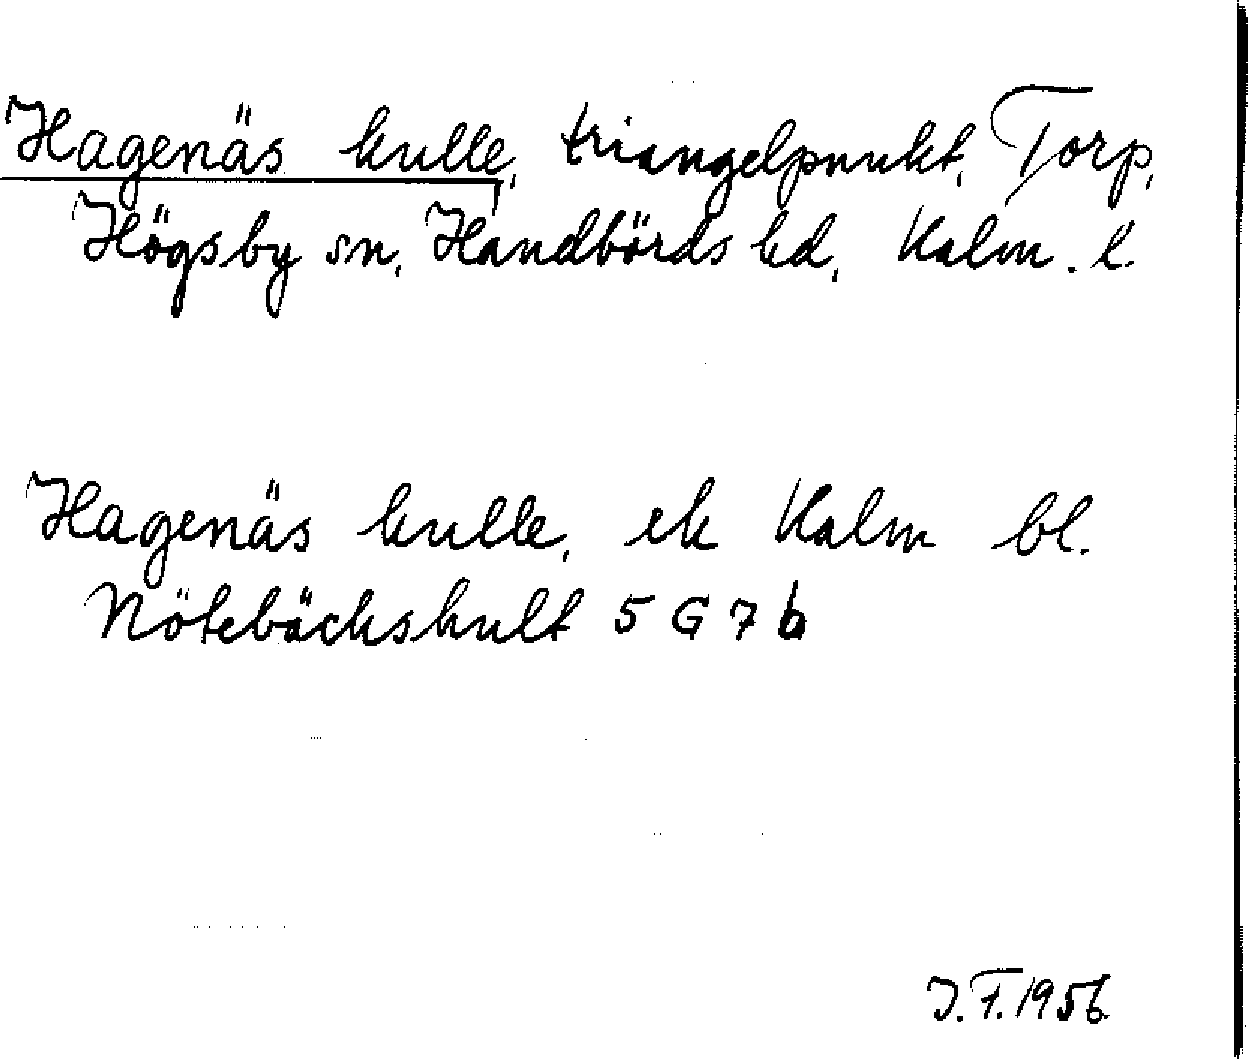 Hagenäs kulle, triangelpunkt, Torp,
Högsby sn, Handbörds hd, Kalm. l.
Hagenäs kulle, ek Kalm bl.
Nötebäckshult 5 G 7 b
J.F. 1956